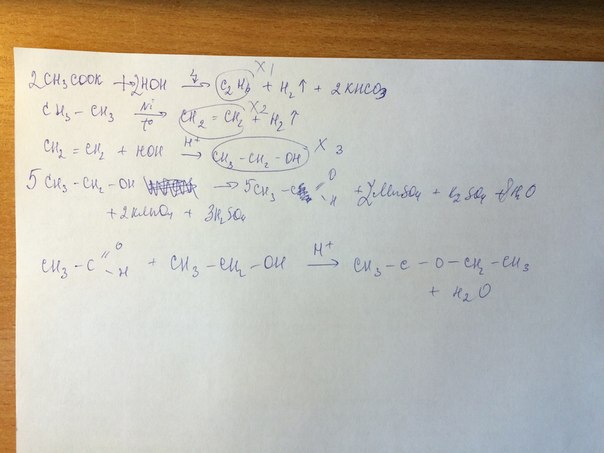 X1
2CH3COOK + 2HOH → C2H6 + H2↑ + 2KHCO3
CH3-CH3 →Ni t° CH2=CH2 + H2↑ X2
CH2=CH2 + HOH →H+ CH3-CH2-OH X3
5CH3-CH2-OH → 5CH3-C=O-H + 2MnSO4 + K2SO4 + 8H2O
+ 2KMnO4 + 3H2SO4
CH3-C=O-H + CH3-CH2-OH →H+ CH3-C-O-CH2-CH3
+ H2O